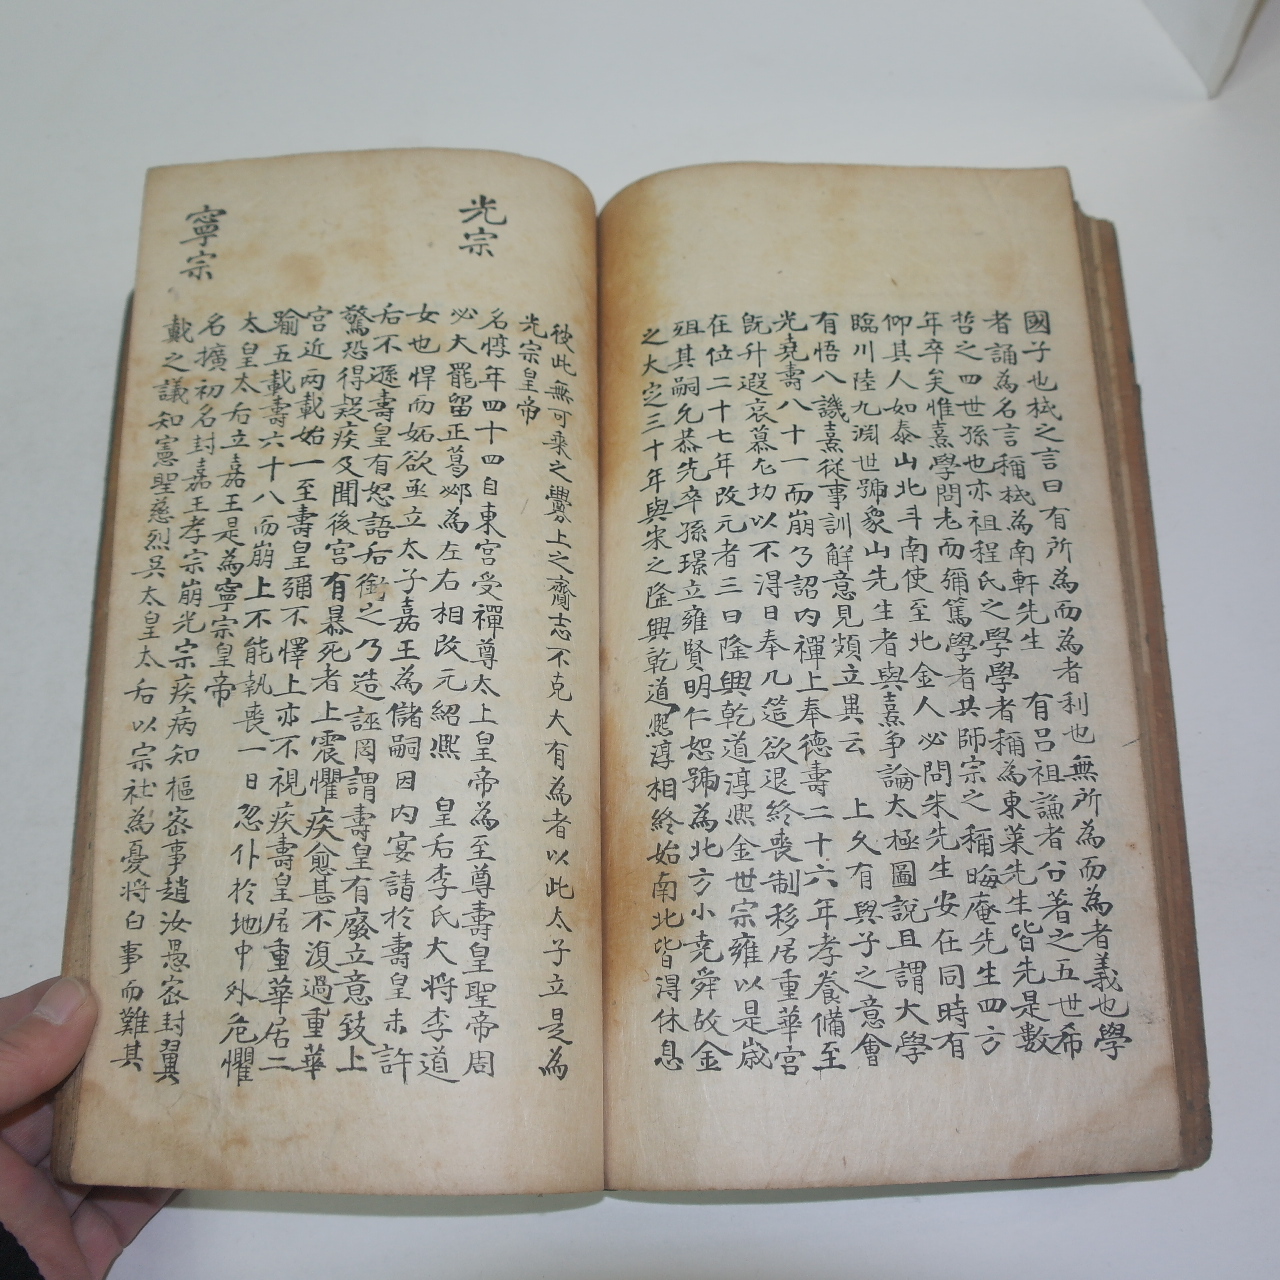 國子也栻之言曰有所為而為者利也無所為而為者義也學
者誦為名言稱栻為南軒先生 有呂祖謙者公著之五世希
哲之四世孫也亦祖程氏之學學者稱為東萊先生皆先是數
年卒矣惟熹學問老而彌篤學者其師宗之稱晦庵先生四方
仰其人如泰山北斗南使至北金人必問朱先生安在同時有
臨川陸九淵世號象山先生者與熹爭論太極圖說且謂大學
有悟八譏熹從事訓解意見頗立異云 上久有與子之意會
光堯壽八十一而崩乃詔內禪上奉德壽二十六年孝養備至
旣升遐哀慕尤切以不淂日奉几筵欲退終喪制移居重華宮
在位二十七年改元者三曰隆興乾道淳熙金世宗雍以是歲
殂其嗣允恭先卒孫璟立雍賢明仁恕號為北方小堯舜故金
之大定三十年與宋之隆興乾道熙淳相終始南北皆淂休息
彼此無可乘之釁上之齎志不克大有為者以此太子立是為
光宗皇帝
光宗
名惇年四十四自東宮受禪尊太上皇帝為至尊壽皇聖帝周
必大罷留正葛邲為左右相改元紹熙 皇后李氏大將李道
女也悍而妬欲亟立太子嘉王為儲嗣因內宴請於壽皇未許
后不遜壽皇有恕語后銜之乃造誣罔謂壽皇有廢立意致上
驚恐得疑疾及聞後宮有暴死者上震懼疾愈甚不復過重華
宮近兩載始一至壽皇彌不懌上亦不視疾壽皇居重華居二
踰五載壽六十八而崩上不能執喪一日忽仆於地中外危懼
太皇太后立嘉王是為寧宗皇帝
寧宗
名擴初名封嘉王孝宗崩光宗疾病知樞密事趙汝愚密封翼
戴之議知憲聖慈烈吳太皇太后以宗社為憂將白事而難其